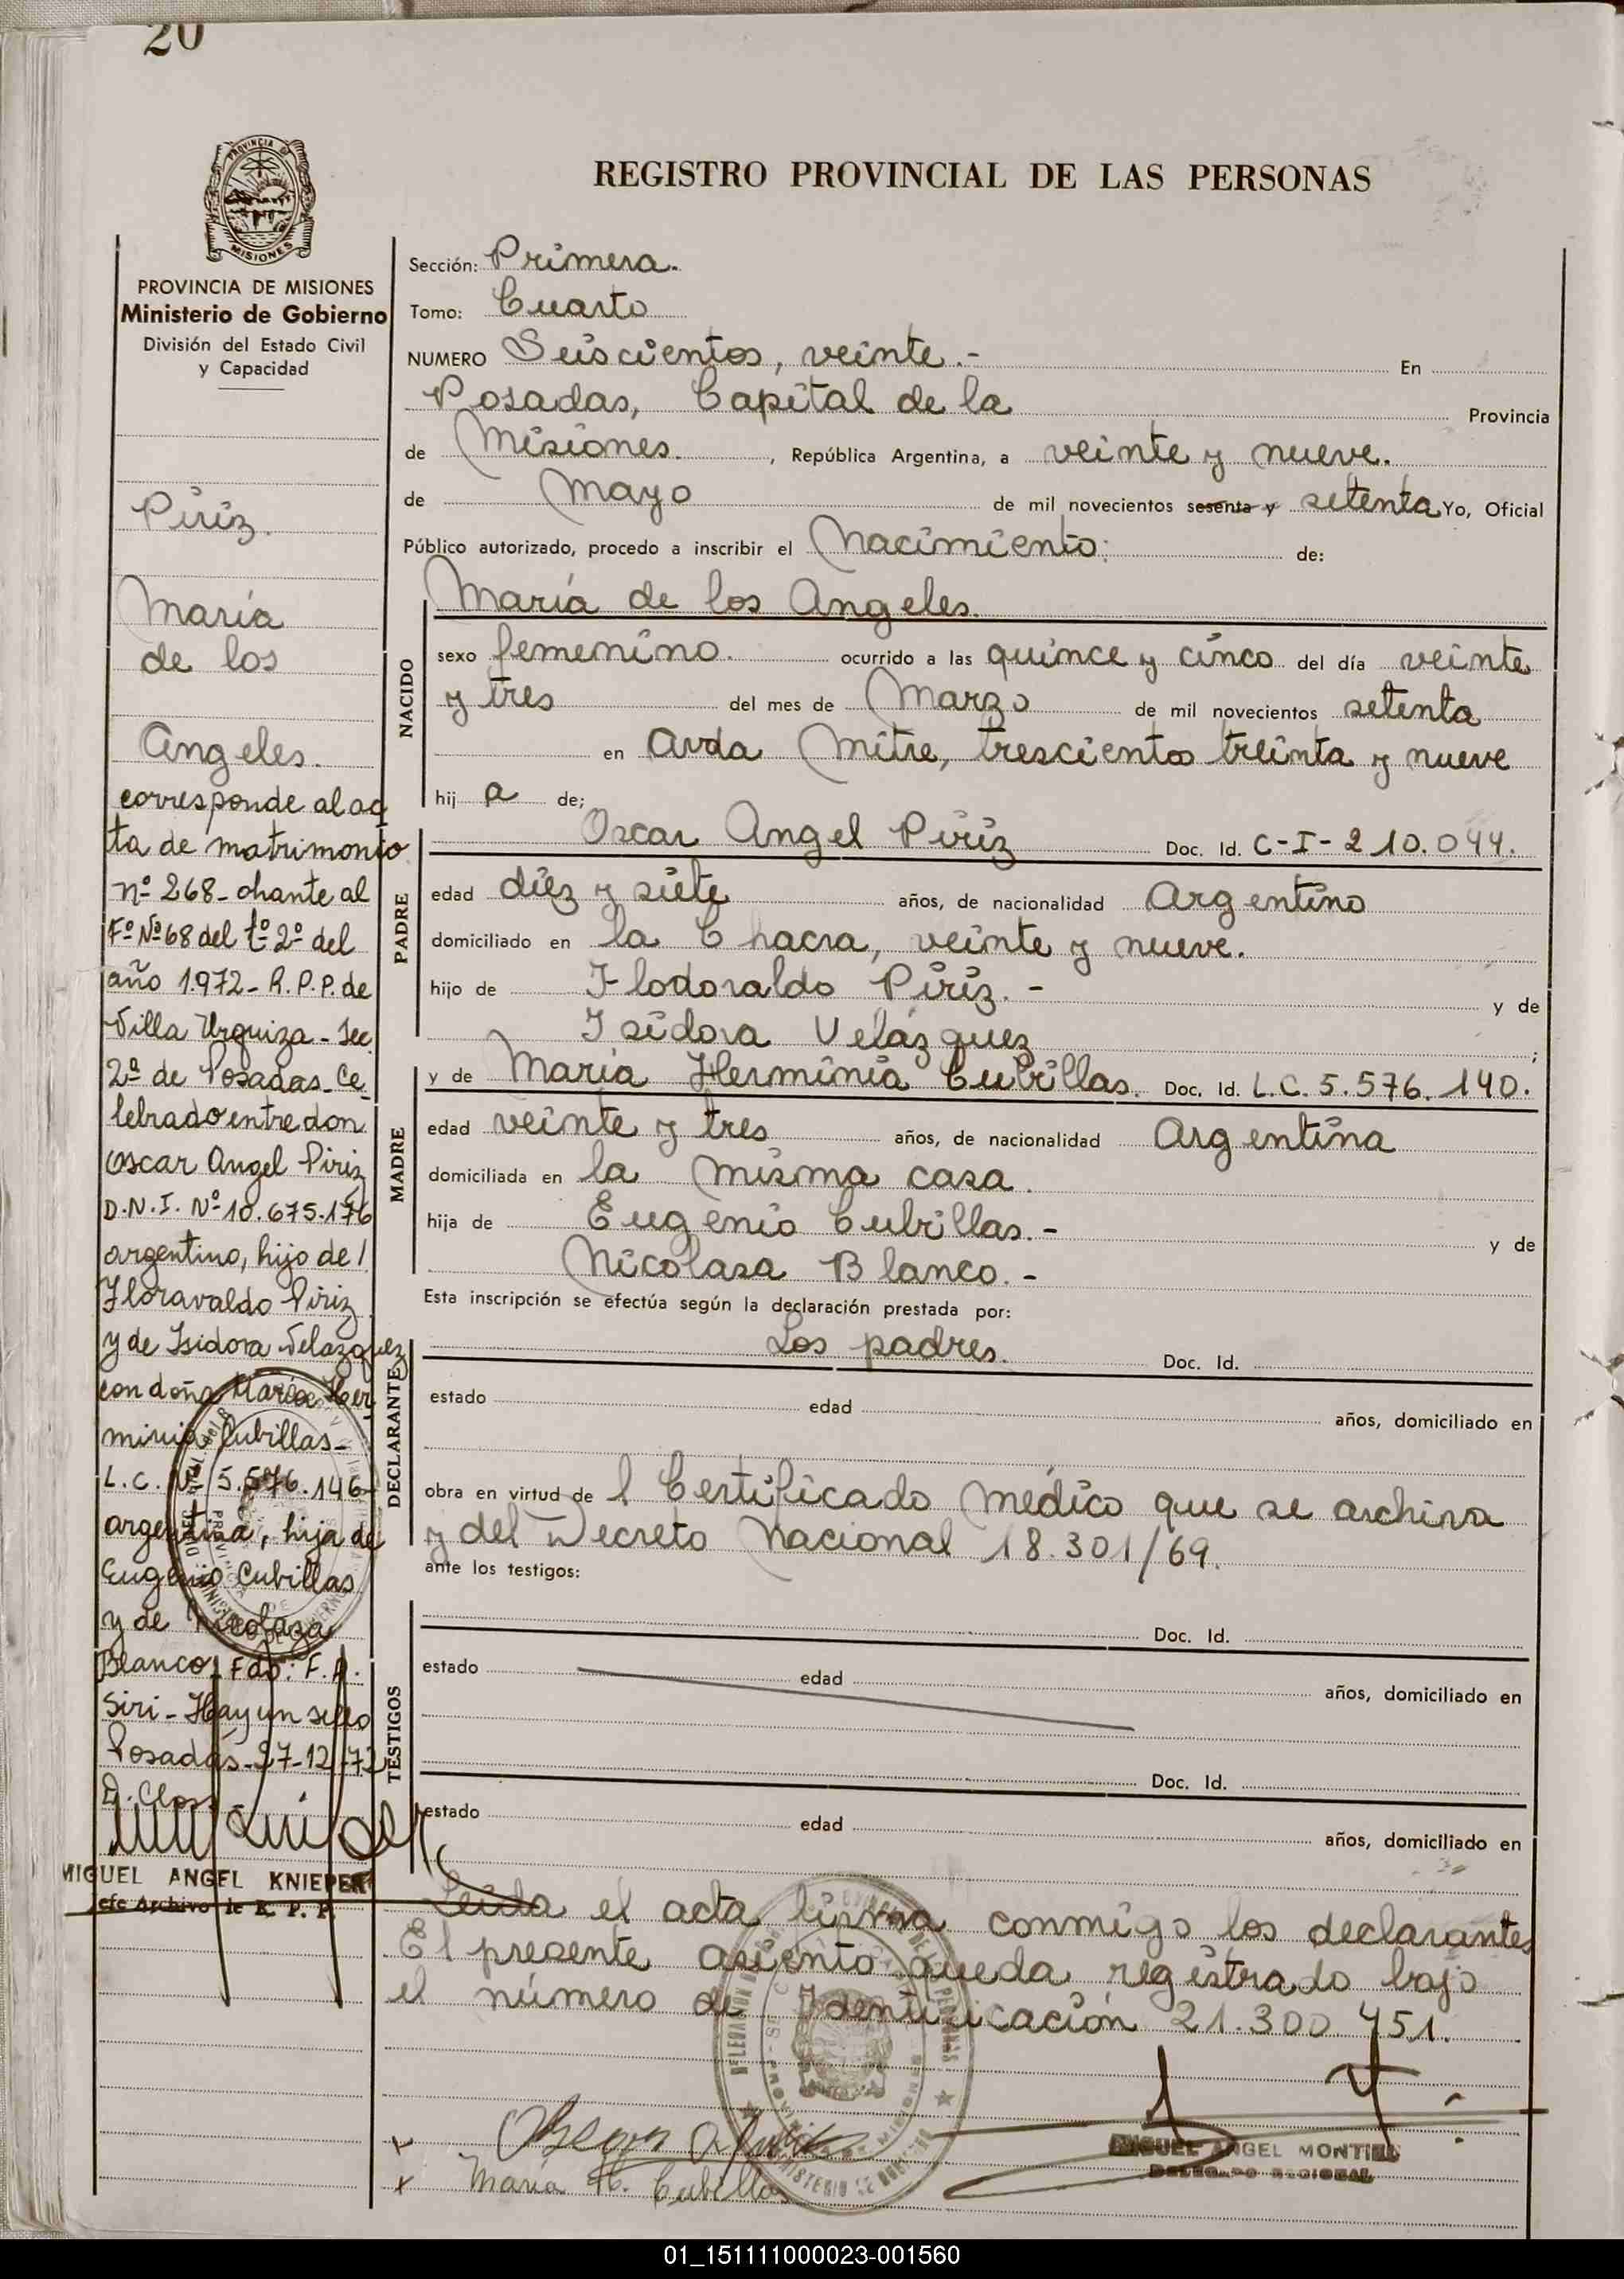 20
REGISTRO PROVINCIAL DE LAS PERSONAS
PROVINCIA DE
MISIONES
PROVINCIA DE MISIONES
Ministerio de Gobierno
División del Estado Civil
y Capacidad
Piriz.
María
de los
Angeles.
corresponde al ac
ta de matrimonio
nº 268- obrante al
Fº Nº 68 del tº 2º del
año 1.972- R.P.P. de
Villa Urquiza - Sec.
2ª de Posadas- Ce
lebrado entre don
Oscar Angel Piriz
D.N.I. Nº 10.675.176
argentino, hijo de /
Floravaldo Piriz
y de Isidora Velazquez
con doña María Her
minia Cubillas-
L.C. Nº 5.576.146-
argentina, hija de
Eugenio Cubillas
y de Nicolasa
Blanco, Fdo: F. A.
Siri - Hay un sello
Posadas - 27-12-72
MIGUEL ANGEL KNIEPER
Jefe Archivo de R. P. P.
Sección: Primera.
Tomo: Cuarto
NUMERO Seiscientos, veinte.- En
Posadas, Capital de la Provincia
de Misiones. , República Argentina, a veinte y nueve.
de Mayo de mil novecientos sesenta y setenta Yo, Oficial
Público autorizado, procedo a inscribir el Nacimiento: de:
María de los Angeles.
NACIDO
sexo femenino. ocurrido a las quince y cinco del día veinte
y tres del mes de Marzo de mil novecientos setenta
en Avda Mitre, trescientos treinta y nueve
hij a de;
PADRE
Oscar Angel Piriz Doc. Id. C-I-210.044.
edad diez y siete años, de nacionalidad Argentino
domiciliado en la Chacra, veinte y nueve.
hijo de Flodoraldo Piriz. - y de
Isidora Velázquez ;
MADRE
y de María Herminia Cubillas. Doc. Id. L.C. 5.576.140.
edad veinte y tres años, de nacionalidad Argentina
domiciliada en la misma casa.
hija de Eugenio Cubillas.- y de
Nicolasa Blanco.-
Esta inscripción se efectúa según la declaración prestada por:
DECLARANTE
Los padres. Doc. Id.
estado edad años, domiciliado en
obra en virtud de l Certificado médico que se archiva
y del Decreto Nacional 18.301/69.
ante los testigos:
TESTIGOS
Doc. Id.
estado edad años, domiciliado en
Doc. Id.
estado edad años, domiciliado en
Leida el acta firma conmigo los declarantes
El presente asiento queda registrado bajo
el número de Identificación 21.300.451.
María H. Cubillas
MIGUEL ANGEL MONTIEL
DELEGADO REGIONAL
01_151111000023-001560